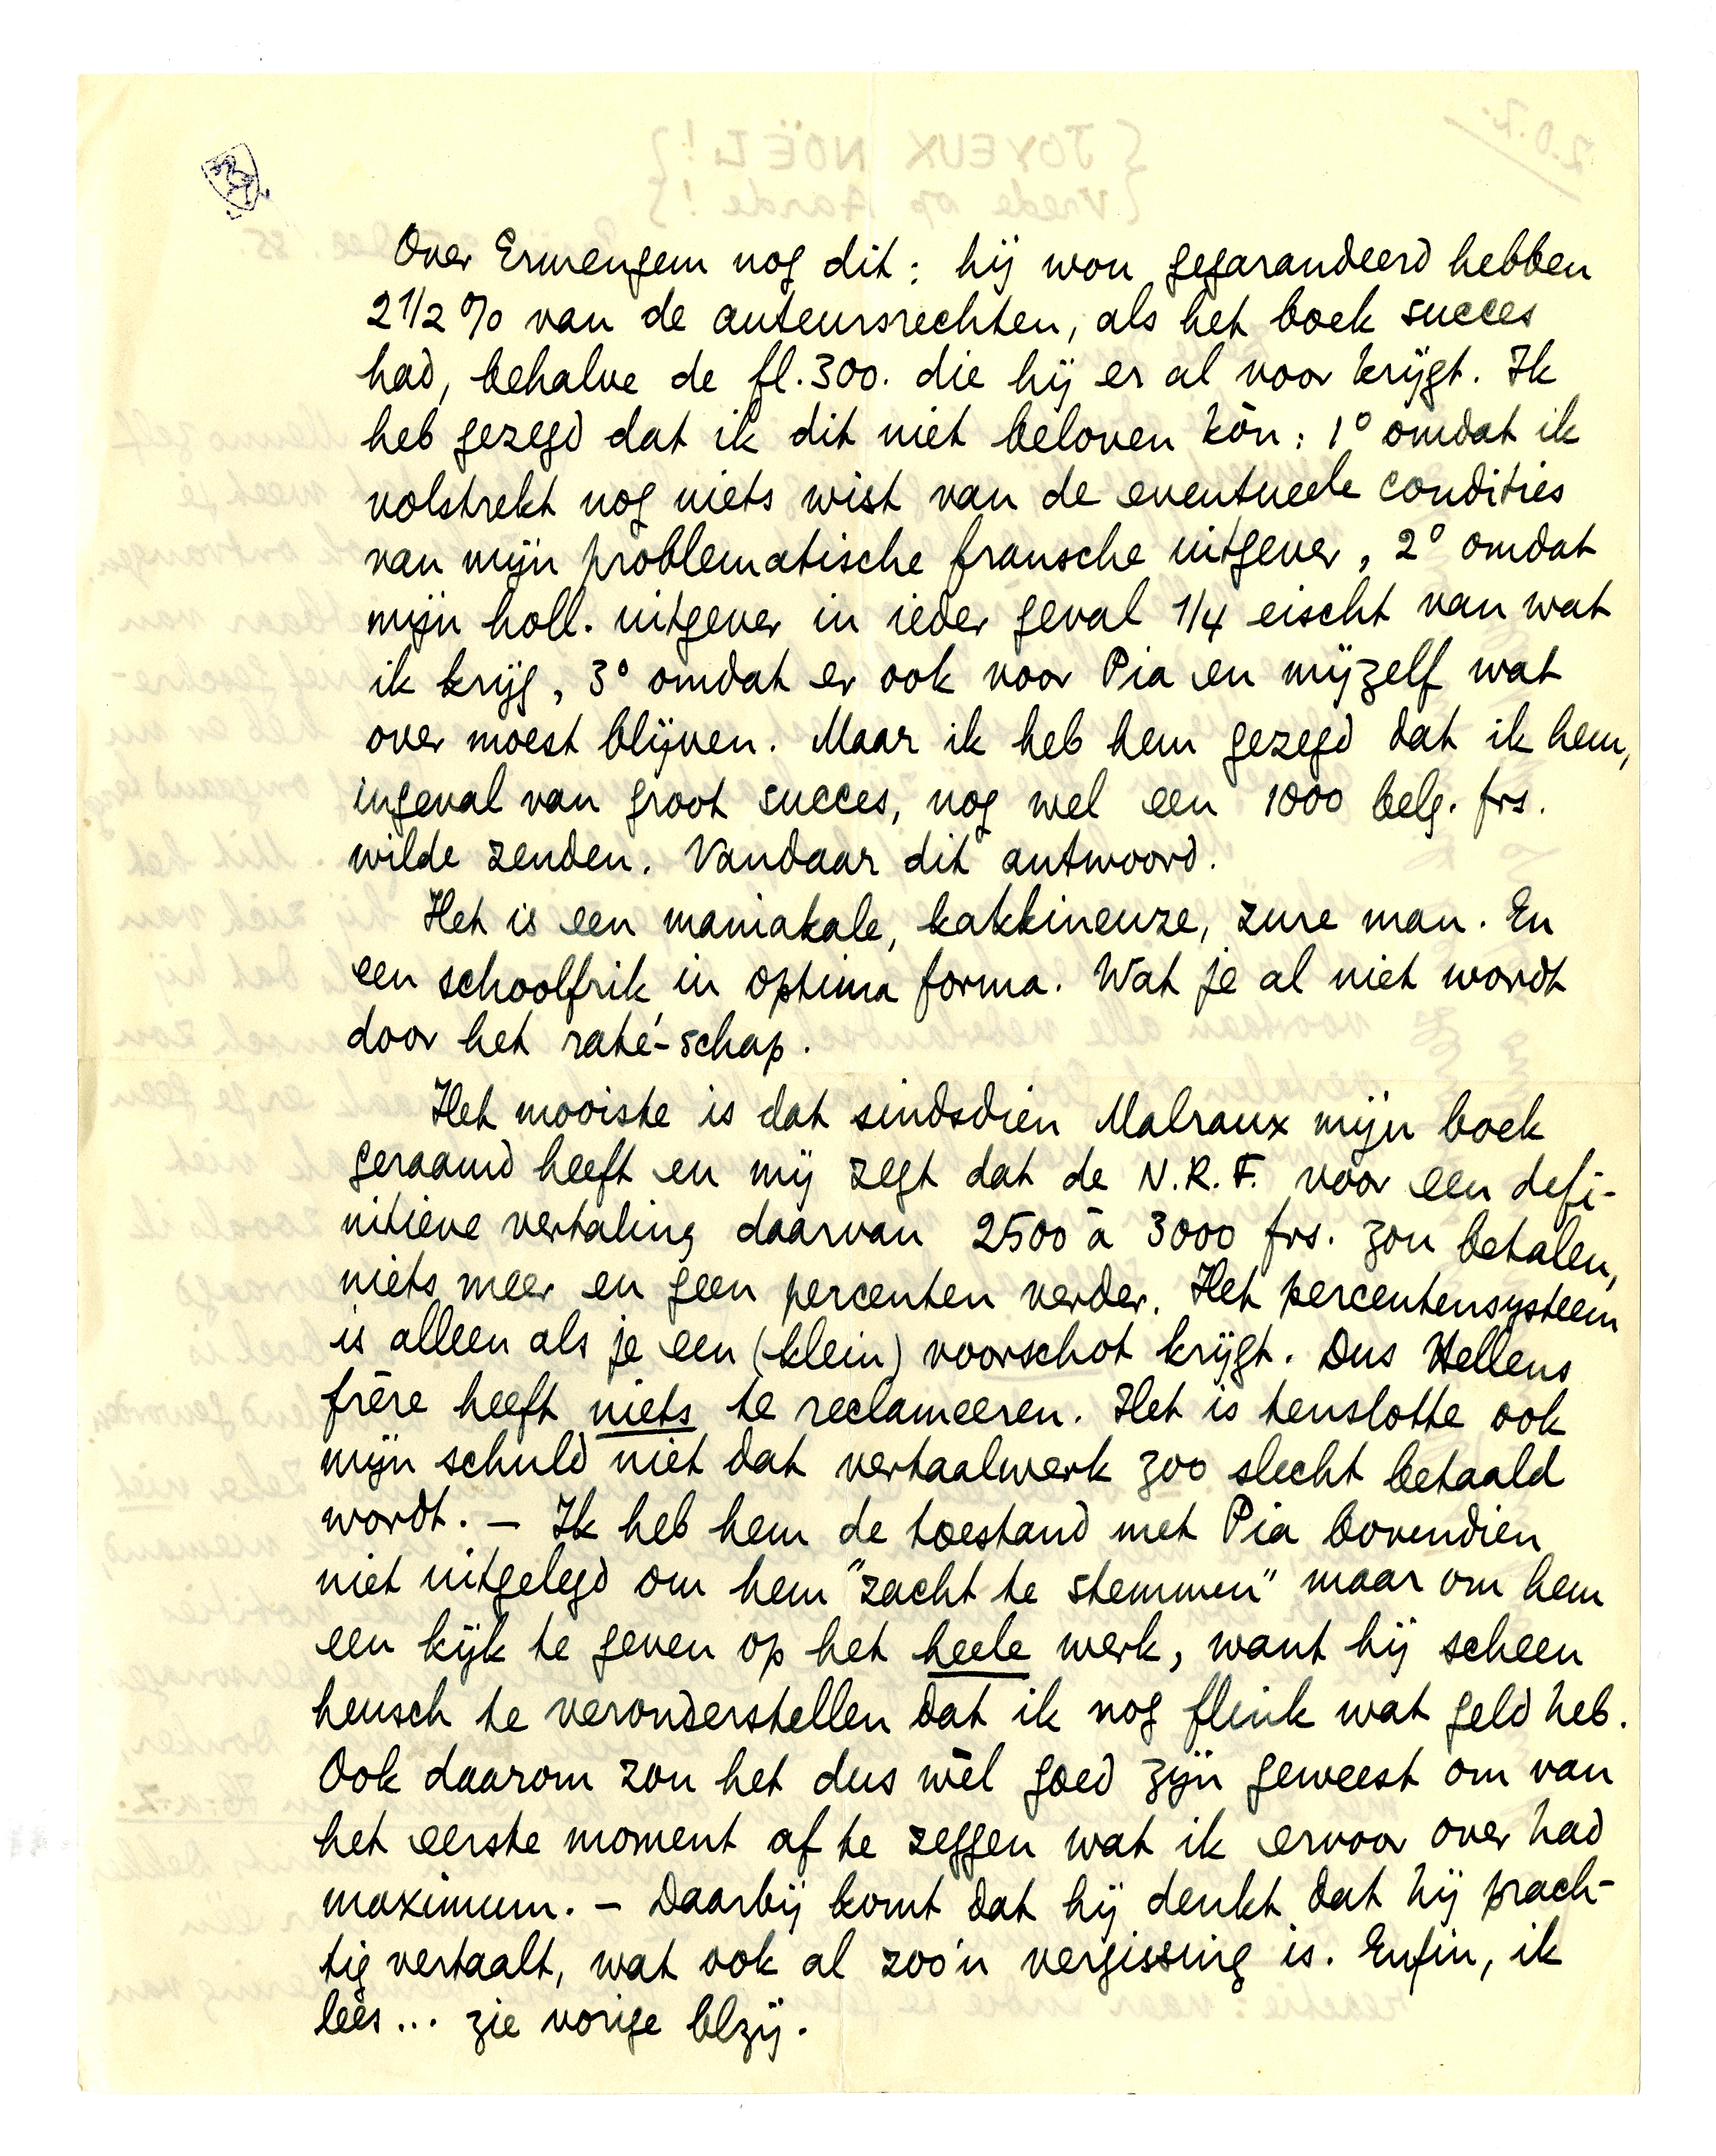 Over Ermengem nog dit: hij wou gegarandeerd hebben
2 1/2 % van de auteursrechten, als het boek succes
had, behalve de fl. 300. die hij er al voor krijgt. Ik
heb gezegd dat ik dit niet beloven kòn: 1° omdat ik
volstrekt nog niets wist van de eventueele condities
van mijn problematische fransche uitgever, 2° omdat
mijn holl. uitgever in ieder geval 1/4 eischt van wat
ik krijg, 3° omdat er ook voor Pia en mijzelf wat
over moest blijven. Maar ik heb hem gezegd dat ik hem,
ingeval van groot succes, nog wel een 1000 belg. frs.
wilde zenden. Vandaar dit antwoord.
Het is een maniakale, kakkineuze, zure man. En
een schoolfrik in optima forma. Wat je al niet wordt
door het raté-schap.
Het mooiste is dat sindsdien Malraux mijn boek
geraamd heeft en mij zegt dat de N.R.F. voor een defi-
nitieve vertaling daarvan 2500 à 3000 frs. zou betalen,
niets meer en geen percenten verder. Het percentensysteem
is alleen als je een (klein) voorschot krijgt. Dus Hellens
frère heeft niets te reclameeren. Het is tenslotte ook
mijn schuld niet dat vertaalwerk zoo slecht betaald
wordt. — Ik heb hem de toestand met Pia bovendien
niet uitgelegd om hem "zacht te stemmen" maar om hem
een kijk te geven op het heele werk, want hij scheen
heusch te veronderstellen dat ik nog flink wat geld heb.
Ook daarom zou het dus wèl goed zijn geweest om van
het eerste moment af te zeggen wat ik ervoor over had
maximum. — Daarbij komt dat hij denkt dat hij prach-
tig vertaalt, wat ook al zoo'n vergissing is. Enfin, ik
lees... zie vorige blzij.